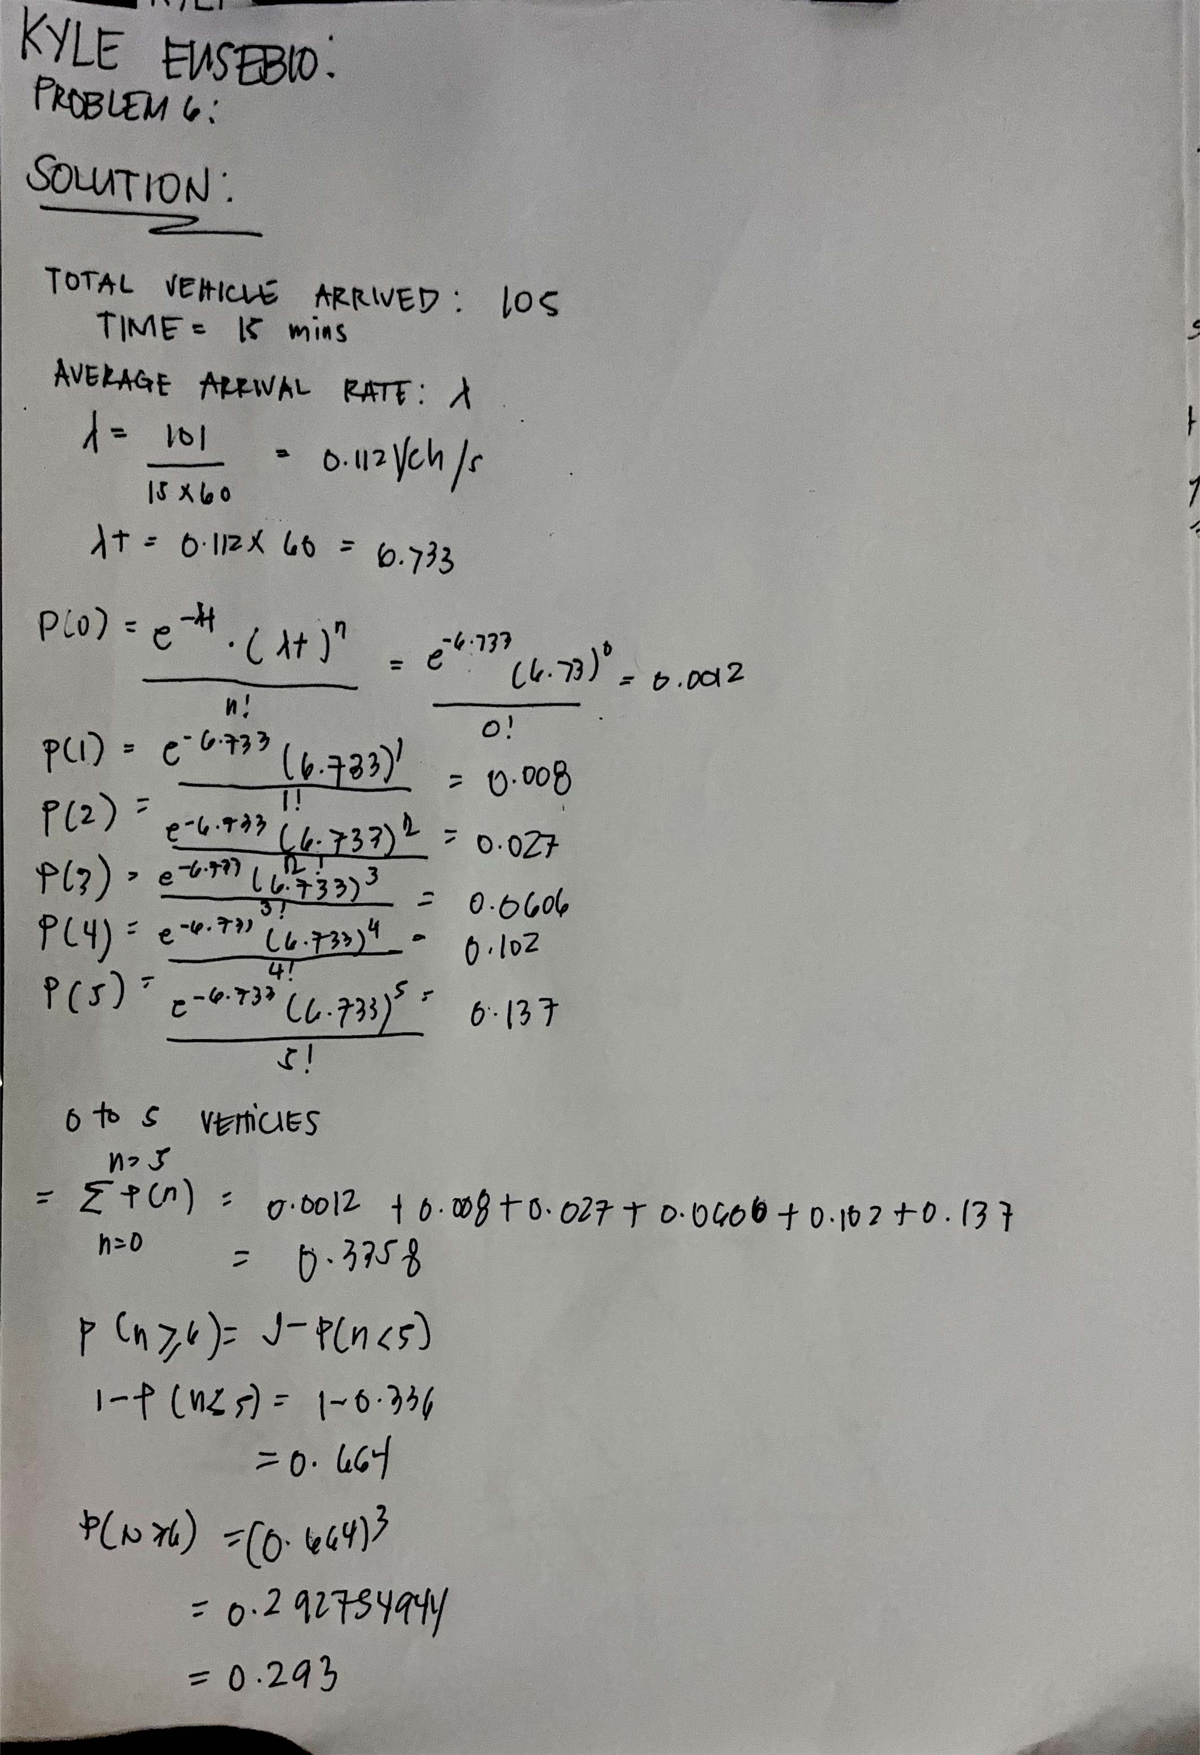 KYLE EUSEBIO:
PROBLEM 6:
SOLUTION:
TOTAL VEHICLE ARRIVED: 105
TIME = 15 mins
AVERAGE ARRIVAL RATE: λ
λ = 101 / 15 x 60 = 0.112 Veh/s
λt = 0.112 x 60 = 6.733
P(0) = e^-λt · (λt)^n / n! = e^-6.733 (6.73)^0 / 0! = 0.0012
P(1) = e^-6.733 (6.733)^1 / 1! = 0.008
P(2) = e^-6.733 (6.733)^2 / 2! = 0.027
P(3) = e^-6.733 (6.733)^3 / 3! = 0.0606
P(4) = e^-6.733 (6.733)^4 / 4! = 0.102
P(5) = e^-6.733 (6.733)^5 / 5! = 0.137
0 to 5 VEHICLES
n=5
= Σ P(n) = 0.0012 + 0.008 + 0.027 + 0.0606 + 0.102 + 0.137
n=0
= 0.3358
P(n≥6) = 1-P(n<5)
1-P(n≤5) = 1-0.336
= 0.664
P(N≥6) = (0.664)^3
= 0.292754944
= 0.293